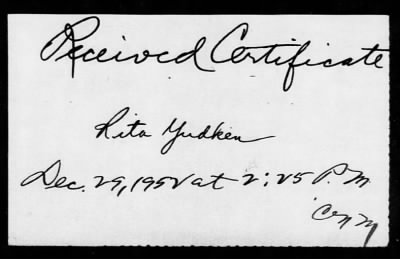 Received Certificate
Rita Yudken
Dec. 29, 1952 at 2:25 P.M